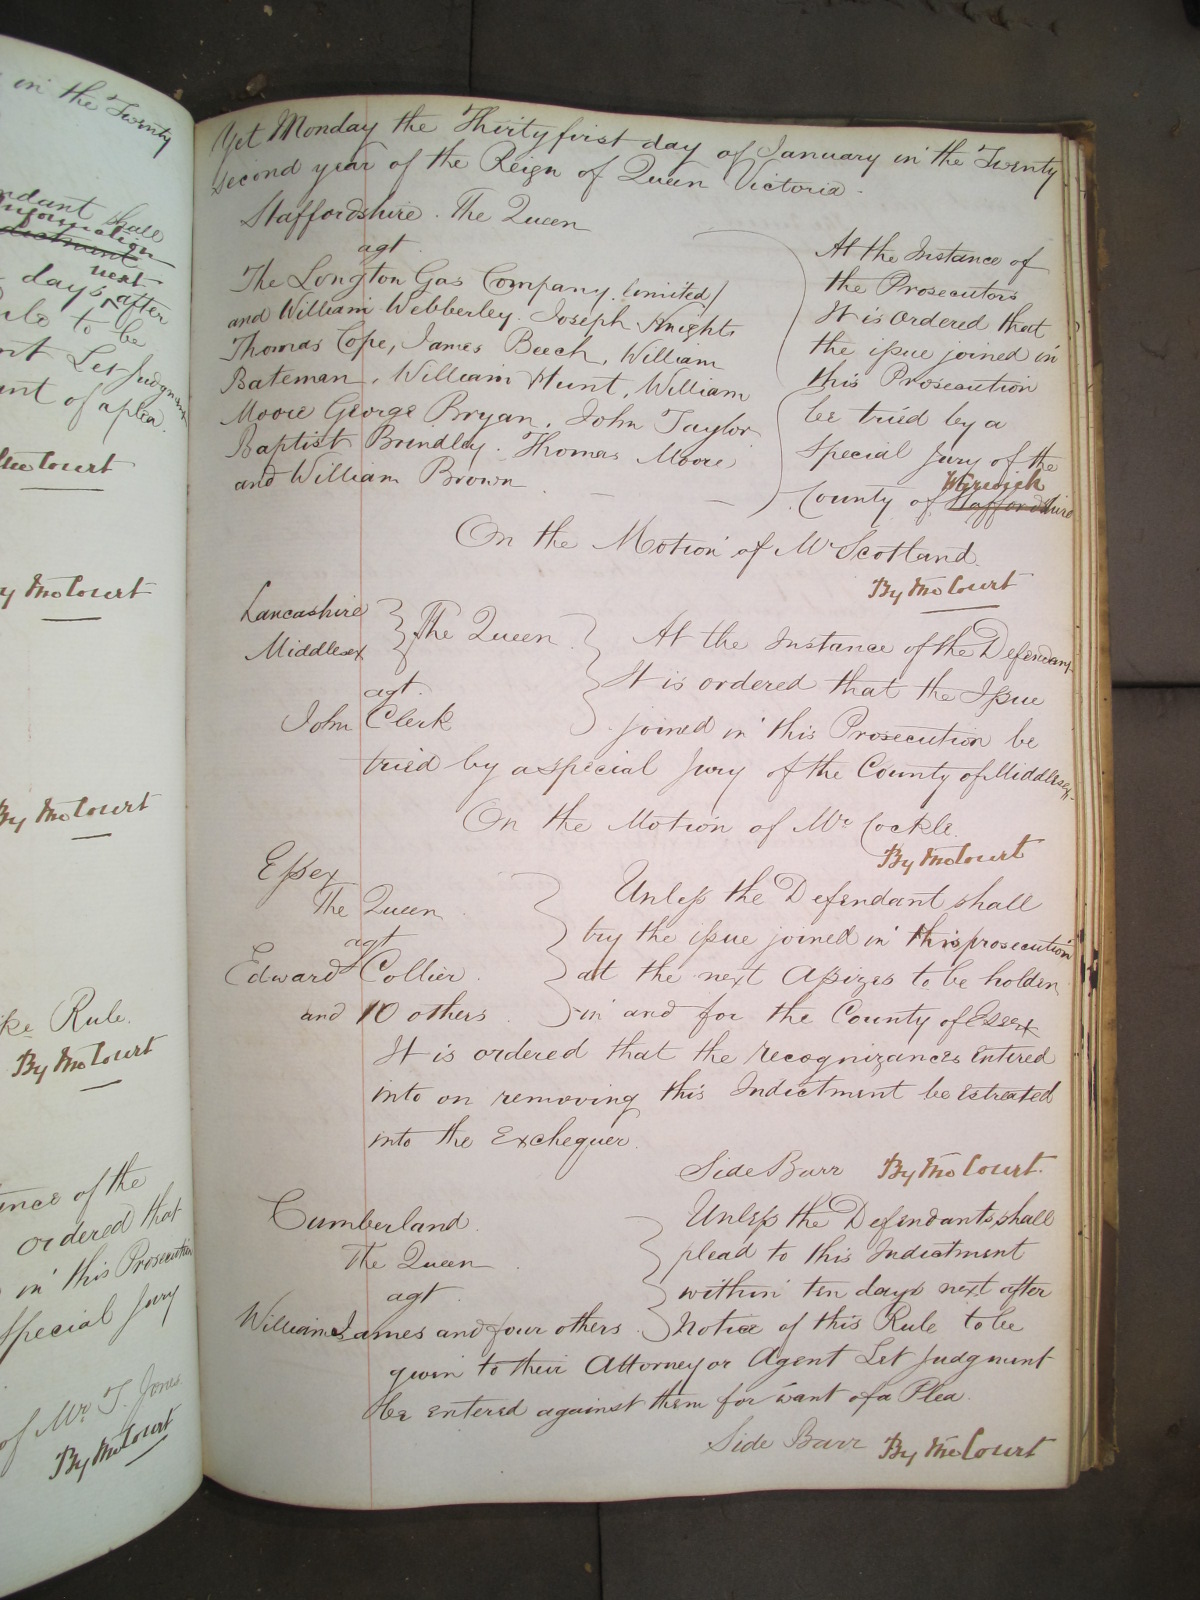 in the Twenty
ndant shall
Information
dictment
next
days after
Rule to be
nt Let Judgment
ant of a plea.
the Court
By the Court
By the Court
like Rule.
By the Court
tance of the
ordered that
in this Prosecution
Special Jury
of Mr T. Jones
By the Court
Yet Monday the Thirtyfirst day of January in the Twenty
second year of the Reign of Queen Victoria.
Staffordshire. The Queen
agt.
The Longton Gas Company, limited /
and William Webberley. Joseph Knight
Thomas Cope, James Beech, William
Bateman, William Hunt, William
Moore George Bryan, John Taylor
Baptist Brindley. Thomas Moore
and William Brown
At the Instance of
the Prosecutors
It is Ordered that
the issue joined in
this Prosecution
be tried by a
Special Jury of the
Warwick
County of Staffordshire
On the Motion of Mr Scotland.
By the Court
Lancashire
Middlesex
The Queen
agt.
John Clerk
At the Instance of the Defendant
It is ordered that the Issue
joined in this Prosecution be
tried by a special Jury of the County of Middlesex.
On the Motion of Mr Cockle.
By the Court
Essex
The Queen
agt
Edward Collier.
and 10 others
Unless the Defendant shall
try the issue joined in this prosecution
at the next Assizes to be holden
in and for the County of Essex
It is ordered that the recognizances entered
into on removing this Indictment be estreated
into the Exchequer.
Side Barr By the Court.
Cumberland.
The Queen
agt.
William James and four others.
Unless the Defendants shall
plead to this Indictment
within ten days next after
Notice of this Rule to be
given to their Attorney or Agent Let Judgment
be entered against them for want of a Plea.
Side Barr By the Court